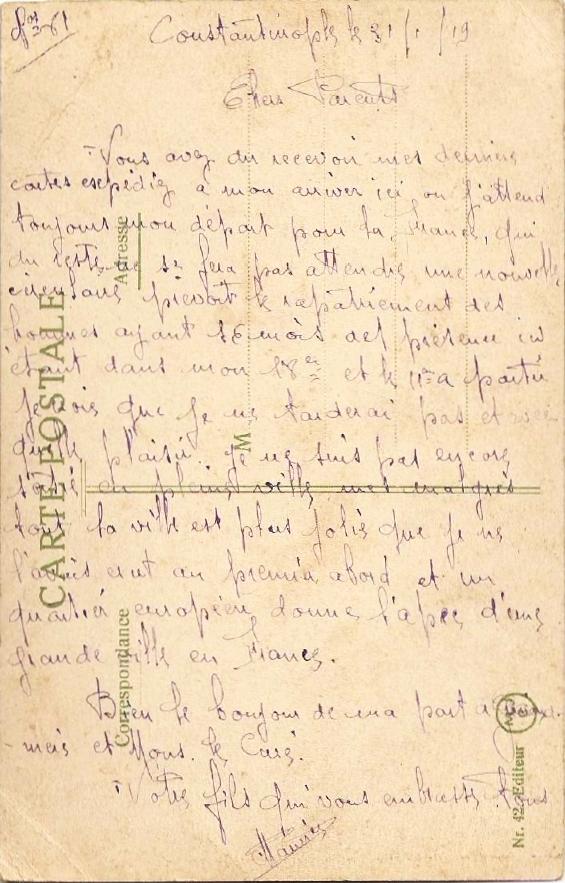 Constantinople le 31/1/19
Chers Parents
Vous avez du recevoir mes dernière
cartes expédiez a mon arriver ici, ou j'attend
toujours mon départ pour la France, qui
du reste ne se fera pas attendre une nouvelle
circulaire prévoit le rapatriement des
hommes ayant 18 mois de présence ici
étant dans mon 18e et le a partir
Je vois que je ne tarderai pas et avec
quelle plaisir. Je ne suis pas encore
en pleine ville mes malgrés
tout la ville est plus jolie que je ne
l'avais crut au premier abord et un
quartier européen donne l'apec d'une
grande ville en France.
Bien le bonjour de ma part a
et Mons. le Curé.
Votre fils qui vous embrasse Tous
Maurice
CARTE POSTALE
Correspondance
Adresse
M
Nr. 42 Editeur